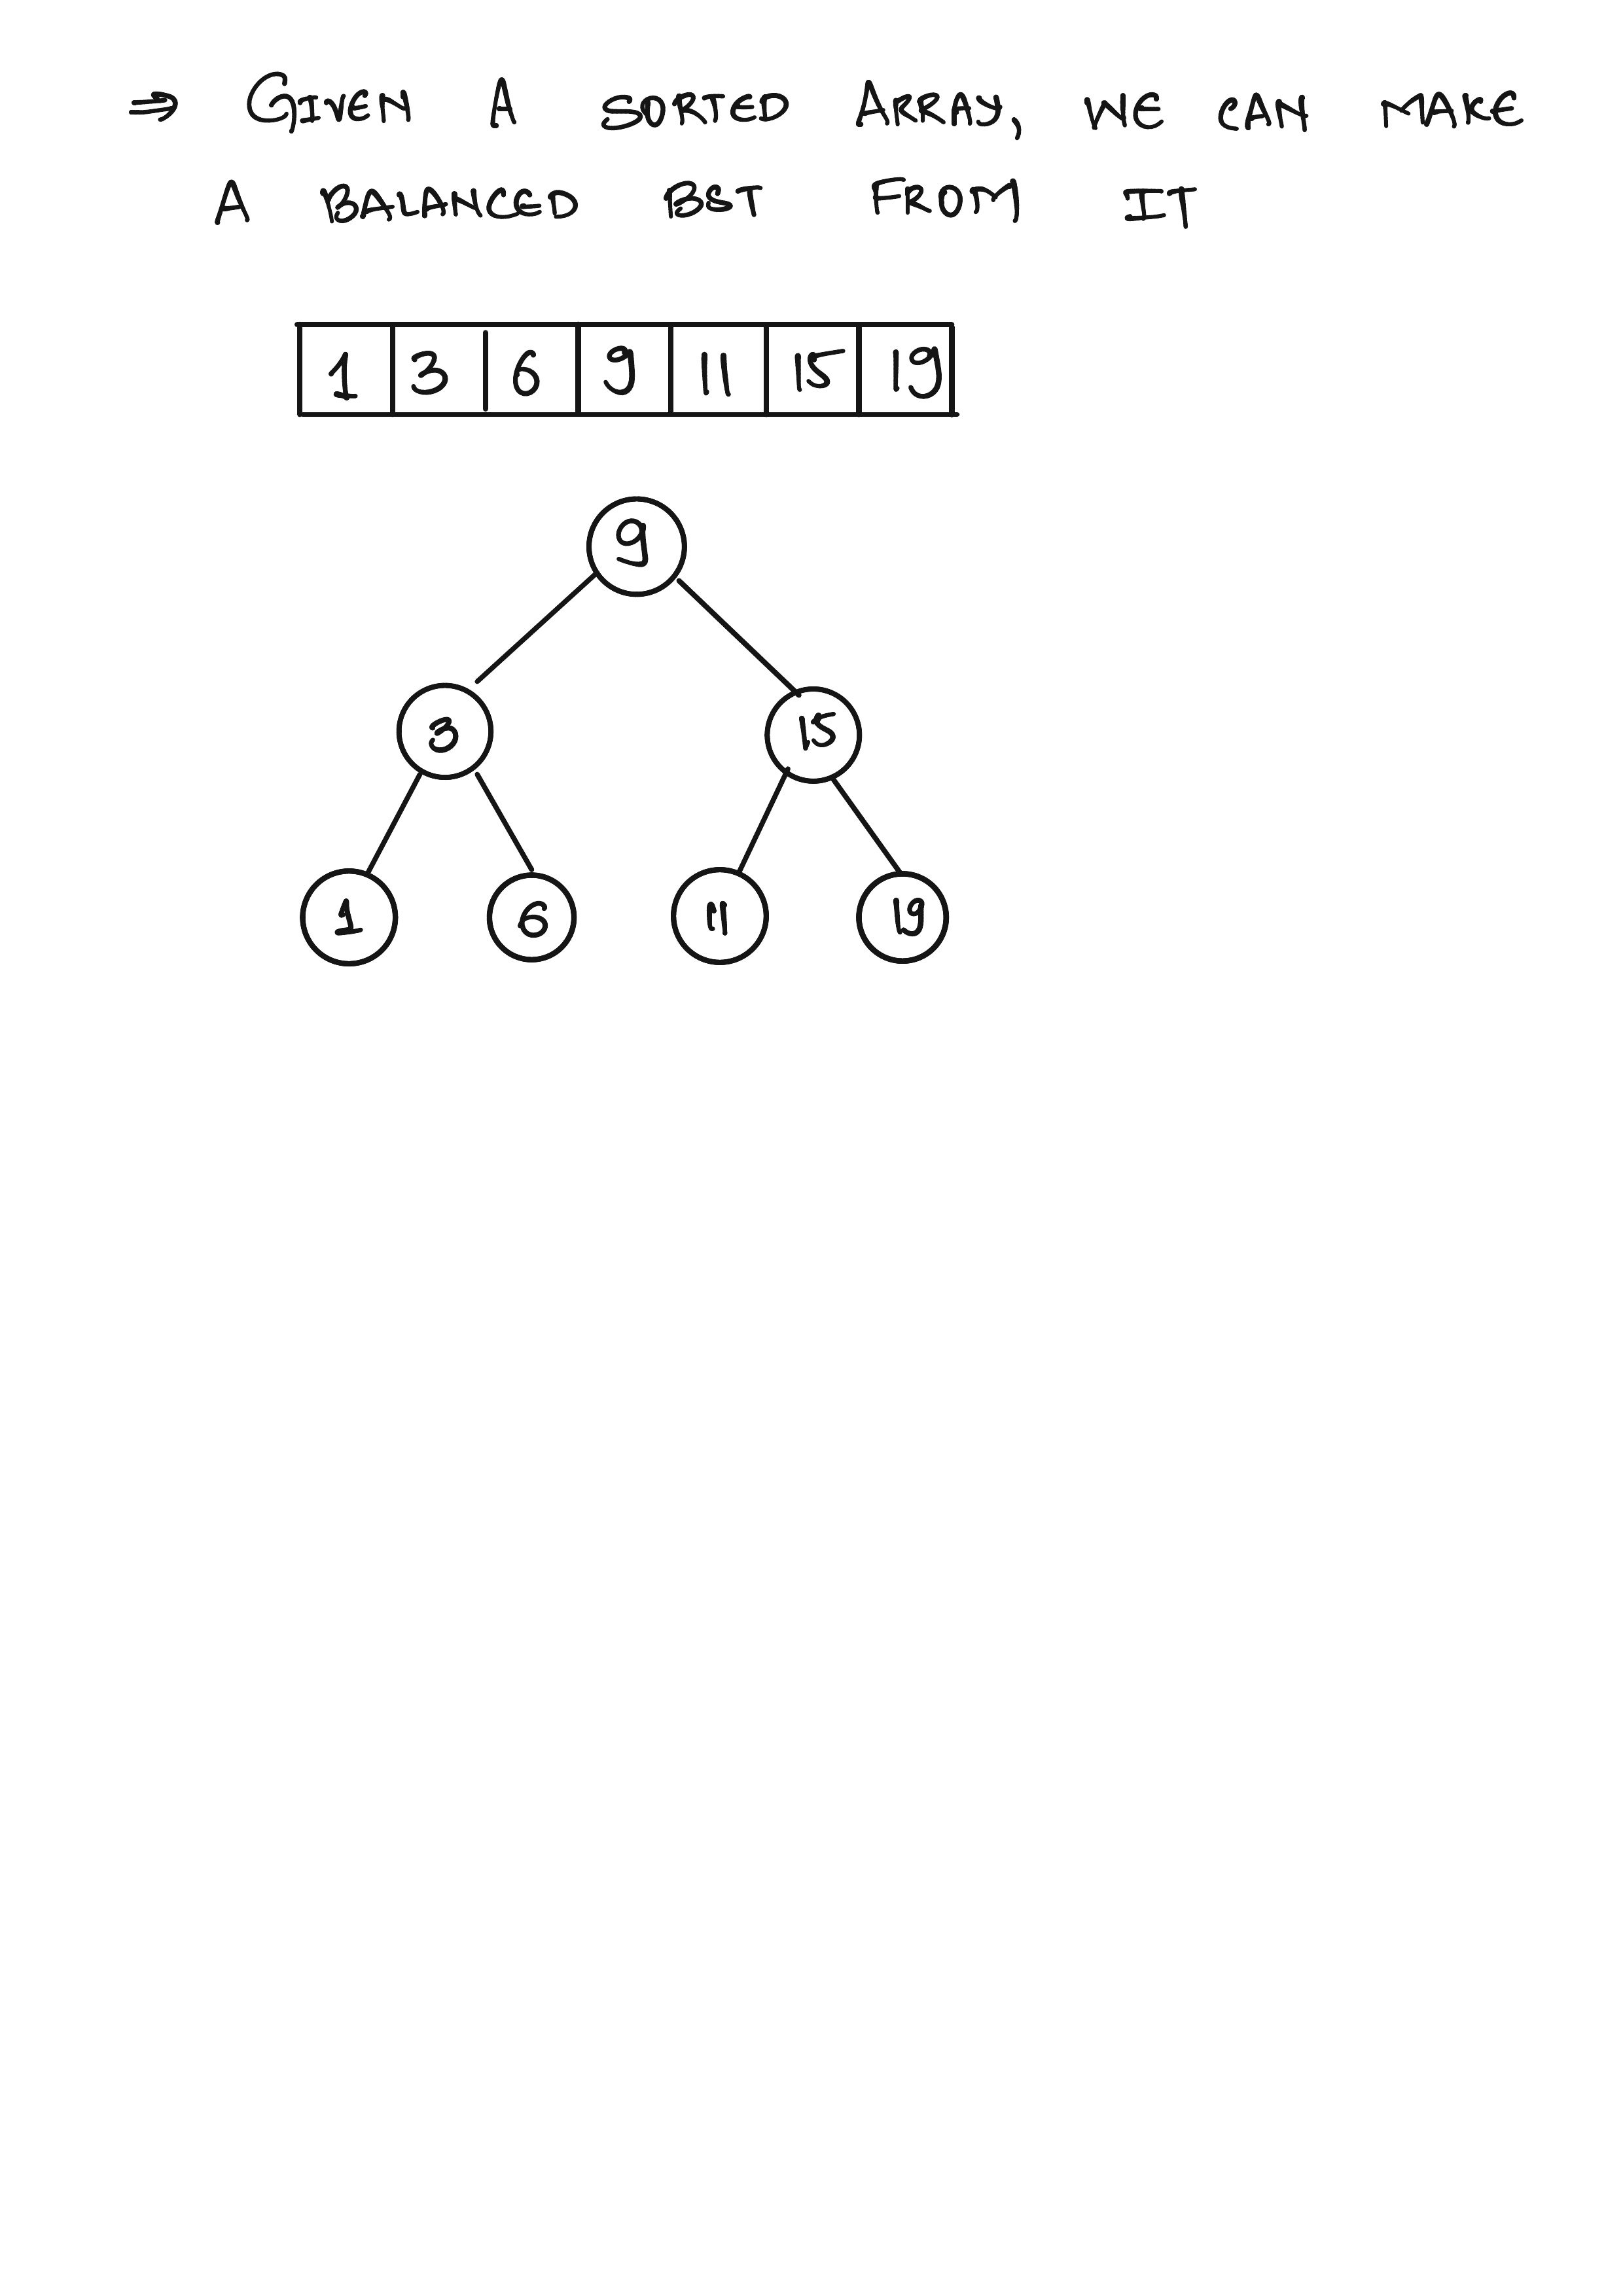 ⇒ GIVEN A SORTED ARRAY, WE CAN MAKE
A BALANCED BST FROM IT
1 3 6 9 11 15 19
9
3 15
1 6 11 19